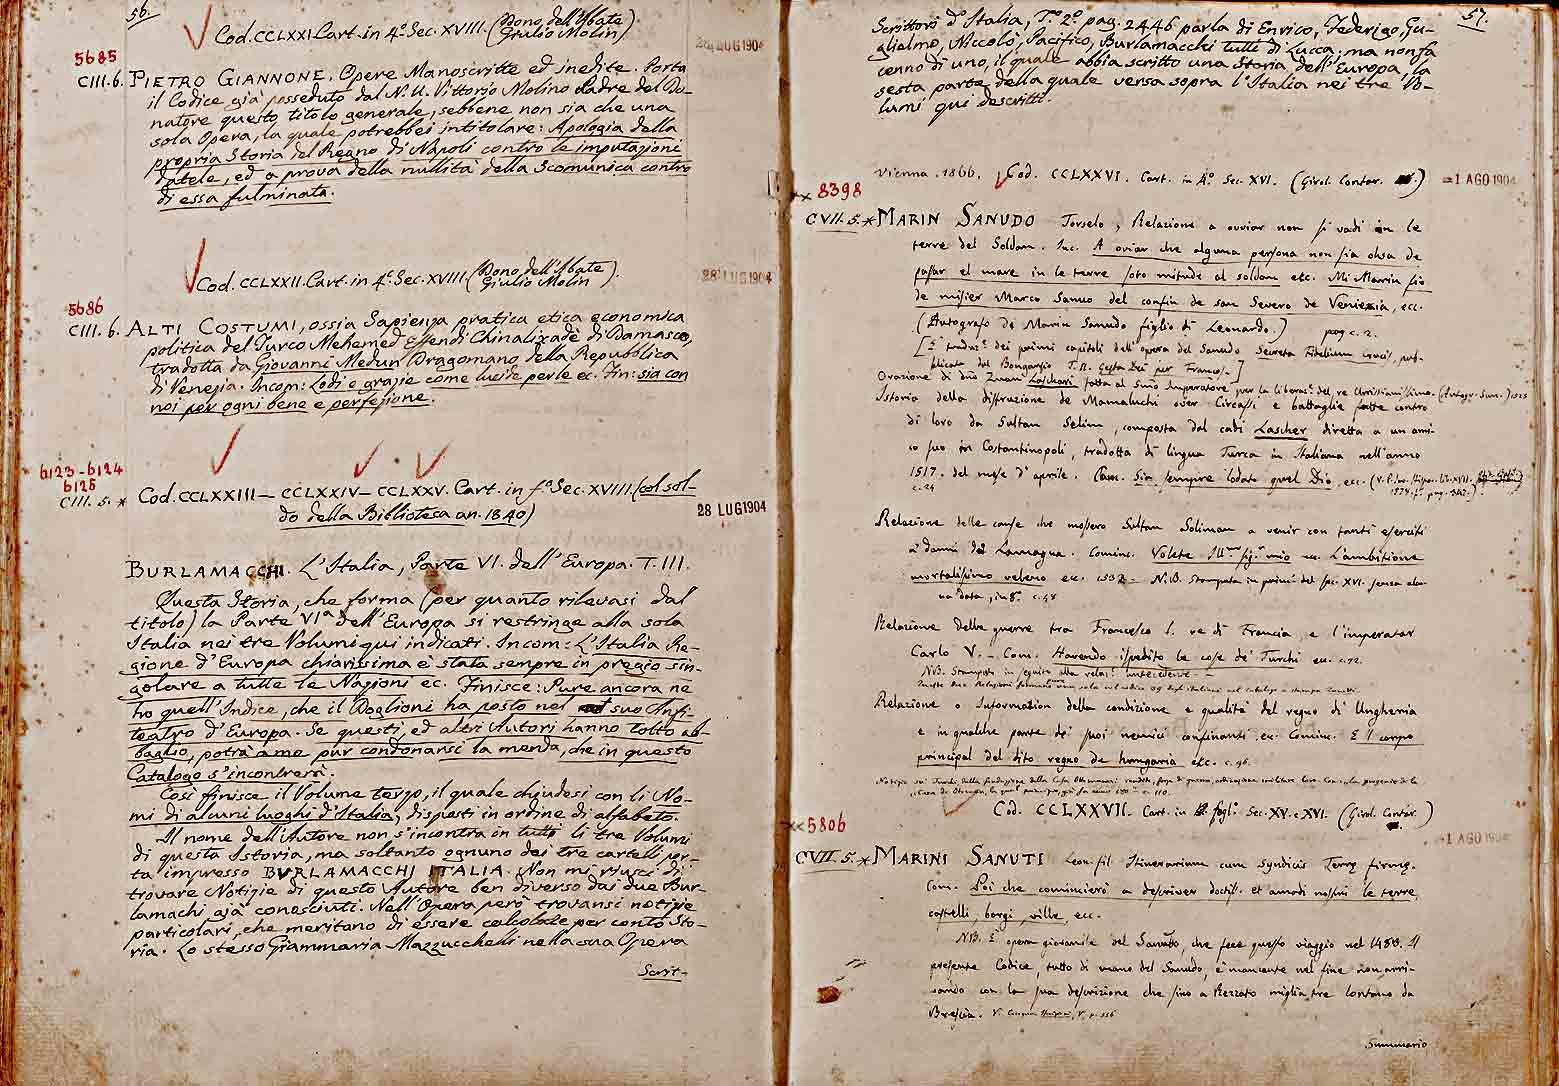 56.
Cod. CCLXXI. Cart. in 4º. Sec. XVIII. (Dono dell'Abate
Giulio Molin)
28 LUG 1904
5685
CIII. 6. PIETRO GIANNONE. Opere Manoscritte ed inedite. Porta
il Codice già posseduto dal N. U. Vittorio Molino Padre del Do-
natore questo titolo generale, sebbene non sia che una
sola Opera, la quale potrebbesi intitolare: Apologia della
propria Storia del Regno di Napoli contro le imputazioni
datele, ed a prova della nullità della Scomunica contro
di essa fulminata.
Cod. CCLXXII. Cart. in 4º. Sec. XVIII. (Dono dell'Abate
Giulio Molin).
28 LUG 1904
5686
CIII. 6. ALTI COSTUMI, ossia Sapienza pratica etica economica
politica del Turco Mehemed Effendi Chinalizadè di Damasco,
tradotta da Giovanni Medun Dragomano della Repubblica
di Venezia. Incom: Lodi e grazie come lucide perle ec. Fin: sia con
noi per ogni bene e perfezione.
6123-6124
6125
CIII. 5. * Cod. CCLXXIII – CCLXXIV – CCLXXV. Cart. in fº. Sec. XVIII. (col sol-
do della Biblioteca an. 1840)
28 LUG 1904
BURLAMACCHI. L'Italia, Parte VI. dell'Europa. T. III.
Questa Storia, che forma (per quanto rilevasi dal
titolo) la Parte VIª dell'Europa si restringe alla sola
Italia nei tre Volumi qui indicati. Incom: L'Italia Re-
gione d'Europa chiarissima è stata sempre in pregio sin-
golare a tutte le Nazioni ec. Finisce: Pure ancora ne
ho quell'Indice, che il Doglioni ha posto nel suo Anfi-
teatro d'Europa. Se questi, ed altri Autori hanno tolto ab-
baglio, potrà a me pur condonarsi la menda, che in questo
Catalogo s'incontrerà.
Così finisce il Volume terzo, il quale chiudesi con li No-
mi di alcuni luoghi d'Italia, disposti in ordine di alfabeto.
Il nome dell'Autore non s'incontra in tutti li tre Volumi
di questa Istoria, ma soltanto ognuno dei tre cartelli por-
ta impresso BVRLAMACCHI ITALIA. Non mi riuscì di
trovare Notizie di questo Autore ben diverso dai due Bur-
lamachi già conosciuti. Nell'Opera però trovansi notizie
particolari, che meritano di essere calcolate per conto Sto-
ria. Lo stesso Giammaria Mazzucchelli nella sua Opera
Scrit-
57.
Scrittori d'Italia, T.º 2º. pag. 2446 parla di Enrico, Federigo, Gu-
glielmo, Niccolò, Pacifico, Burlamacchi tutti di Lucca; ma non fa
cenno di uno, il quale abbia scritto una Storia dell'Europa, la
sesta parte della quale versa sopra l'Italia nei tre Vo-
lumi qui descritti.
Vienna. 1866. Cod. CCLXXVI. Cart. in 4º. Sec. XVI. (Girol. Contar.)
1 AGO 1904
8398
CVII. 5. * MARIN SANUDO Torselo, Relazione a ouviar non si vadi in le
terre del Soldan. Inc. A oviar che alguna persona non sia olsa de
passar el mare in le terre soto mitude al soldan etc. Mi Marin fio
de missier Marco Sanuo del confin de san Severo de Veniexia, ecc.
(Autografo de Marin Sanudo figlio di Leonardo.) pag c. 2.
[È traduzº. dei primi capitoli dell'opera del Sanudo Secreta Fidelium Crucis, pub-
blicata dal Bongarsio T. II. Gesta Dei per Francos.]
Orazione di dño Zuan Lascari fatta al Smo Imperatore per la liberazº. del re Christianissimo. (Autogr. San.) 1525
Istoria della distruzione de Mamaluchi over Circassi e battaglie fatte contro
di loro da Sultan Selim, composta dal cadi Lascher diretta a un ami-
co suo in Costantinopoli, tradotta di lingua Turca in Italiana nell'anno
1517. del mese d'aprile. Com. Sia sempre lodato quel Dio, ecc.
c. 24
Relazione delle cause che mossero Sultan Soliman a venir con tanti eserciti
a danni de Lamagna. Cominc. Volete Illmo sigr mio ec. L'ambitione
mortalissimo veleno ec. 1532 – N.B. Stampata in princº. del sec. XVI. senza alcu-
na data, in 8º. c. 48
Relazione delle guerre tra Francesco I. re di Francia, e l'imperator
Carlo V. – Com. Havendo ispedito le cose de' Turchi ec. c. 72.
NB. Stampata in seguito alla relazº. antecedente. –
Relazione o Information della condizione e qualità del regno di Ungheria
e in qualche parte dei suoi nemici confinanti, ec. Cominc. E'l corpo
principal del dito regno de hongaria etc. c. 96.
Cod. CCLXXVII. Cart. in fogl. Sec. XV. e XVI. (Girol. Contar.)
1 AGO 1904
5806
CVII. 5. * MARINI SANUTI Leon. fil Itinerarium cum Syndicis Terrę firmę.
Com. Poi che comincierò a descriver doctiss. et amadi nostri le terre,
castelli, borgi, ville, ecc.
NB. È opera giovanile del Sanudo, che fece questo viaggio nel 1483. Il
presente Codice, tutto di mano del Sanudo, è mancante nel fine non arri-
vando con la sua descrizione che sino a Rezzato miglia tre lontano da
Brescia.
Summario